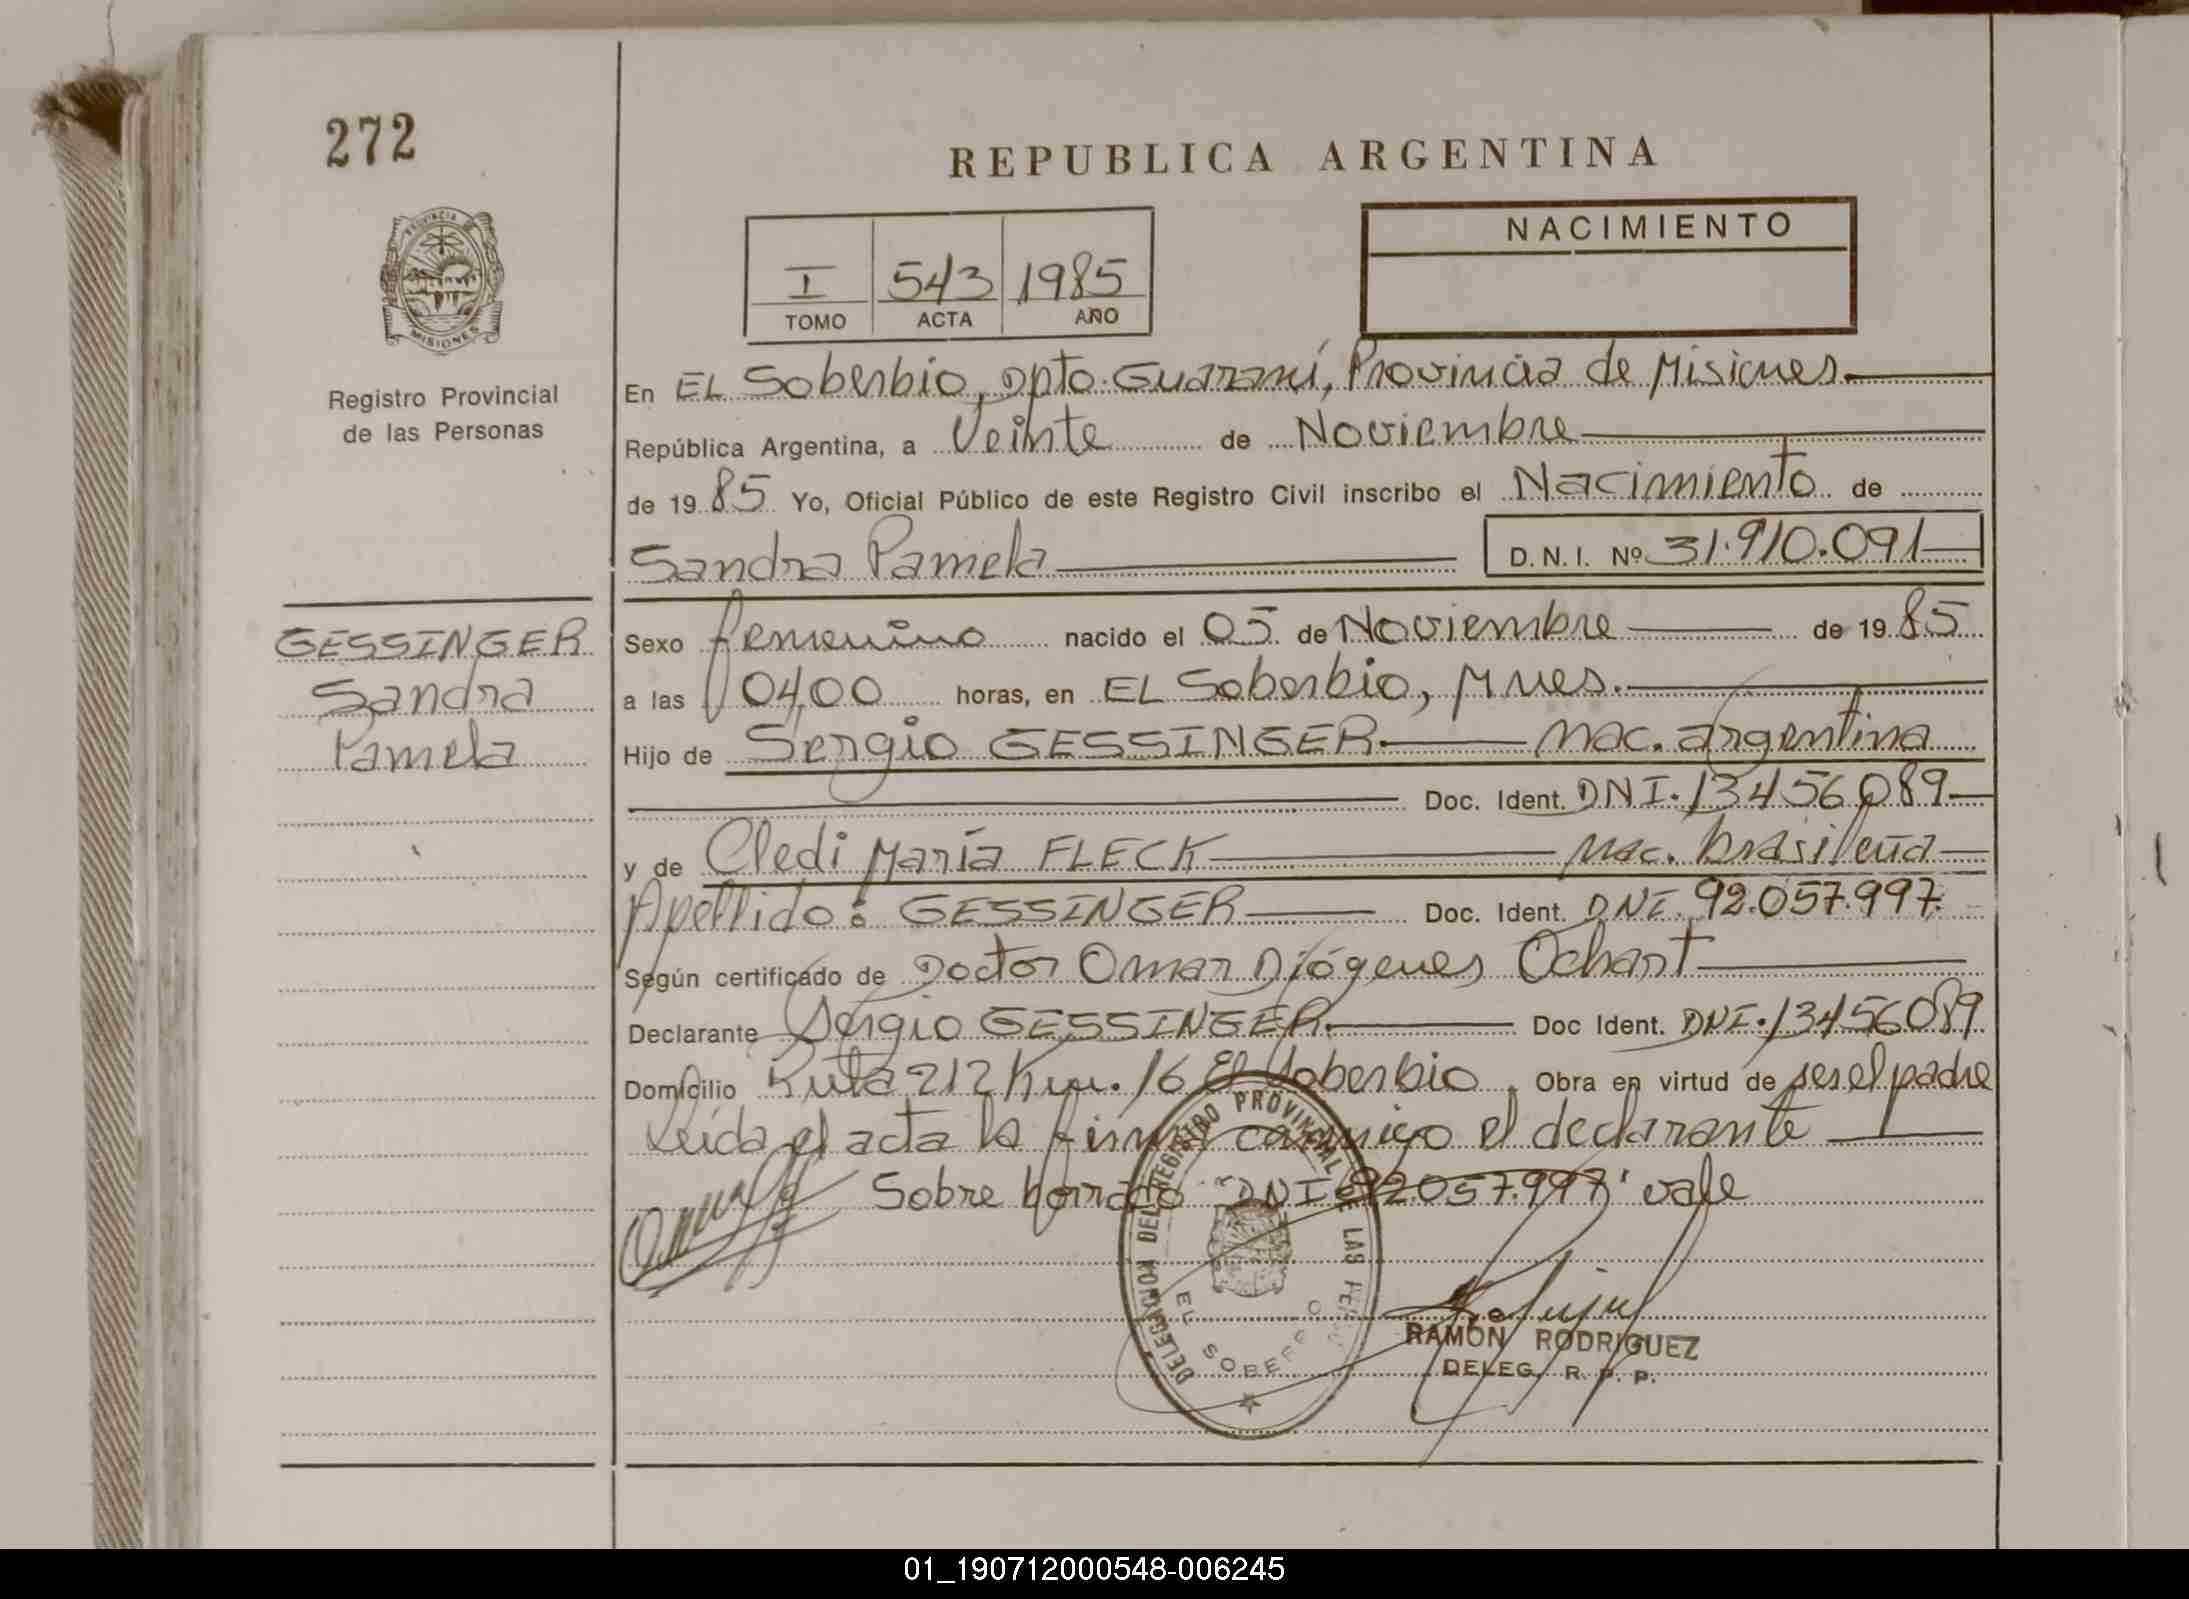 272
PROVINCIA DE
MISIONES
Registro Provincial
de las Personas
GESSINGER
Sandra
Pamela
REPUBLICA ARGENTINA
I 543 1985
TOMO ACTA AÑO
NACIMIENTO
En EL Soberbio, Dpto. Guaraní, Provincia de Misiones.
República Argentina, a Veinte de Noviembre
de 1985 Yo, Oficial Público de este Registro Civil inscribo el Nacimiento de
Sandra Pamela D.N.I. Nº 31.910.091
Sexo femenino nacido el 05 de Noviembre de 1985
a las 04,00 horas, en EL Soberbio, Mnes.
Hijo de Sergio GESSINGER nac. argentina
Doc. Ident. DNI. 13456089
y de Cledi María FLECK nac. brasileña
Apellido: GESSINGER Doc. Ident. DNI. 92.057.997.
Según certificado de Doctor Omar Diógenes Ochart
Declarante Sergio GESSINGER Doc Ident. DNI. 13456089
Domicilio Ruta 212 Km. 16 El Soberbio. Obra en virtud de ser el padre
Leída el acta la firma conmigo el declarante
Sobre borrado "DNI 92.057.997" vale
DELEGACION DEL REGISTRO PROVINCIAL DE LAS
EL
RAMÓN RODRIGUEZ
DELEG. R. P. P.
01_190712000548-006245